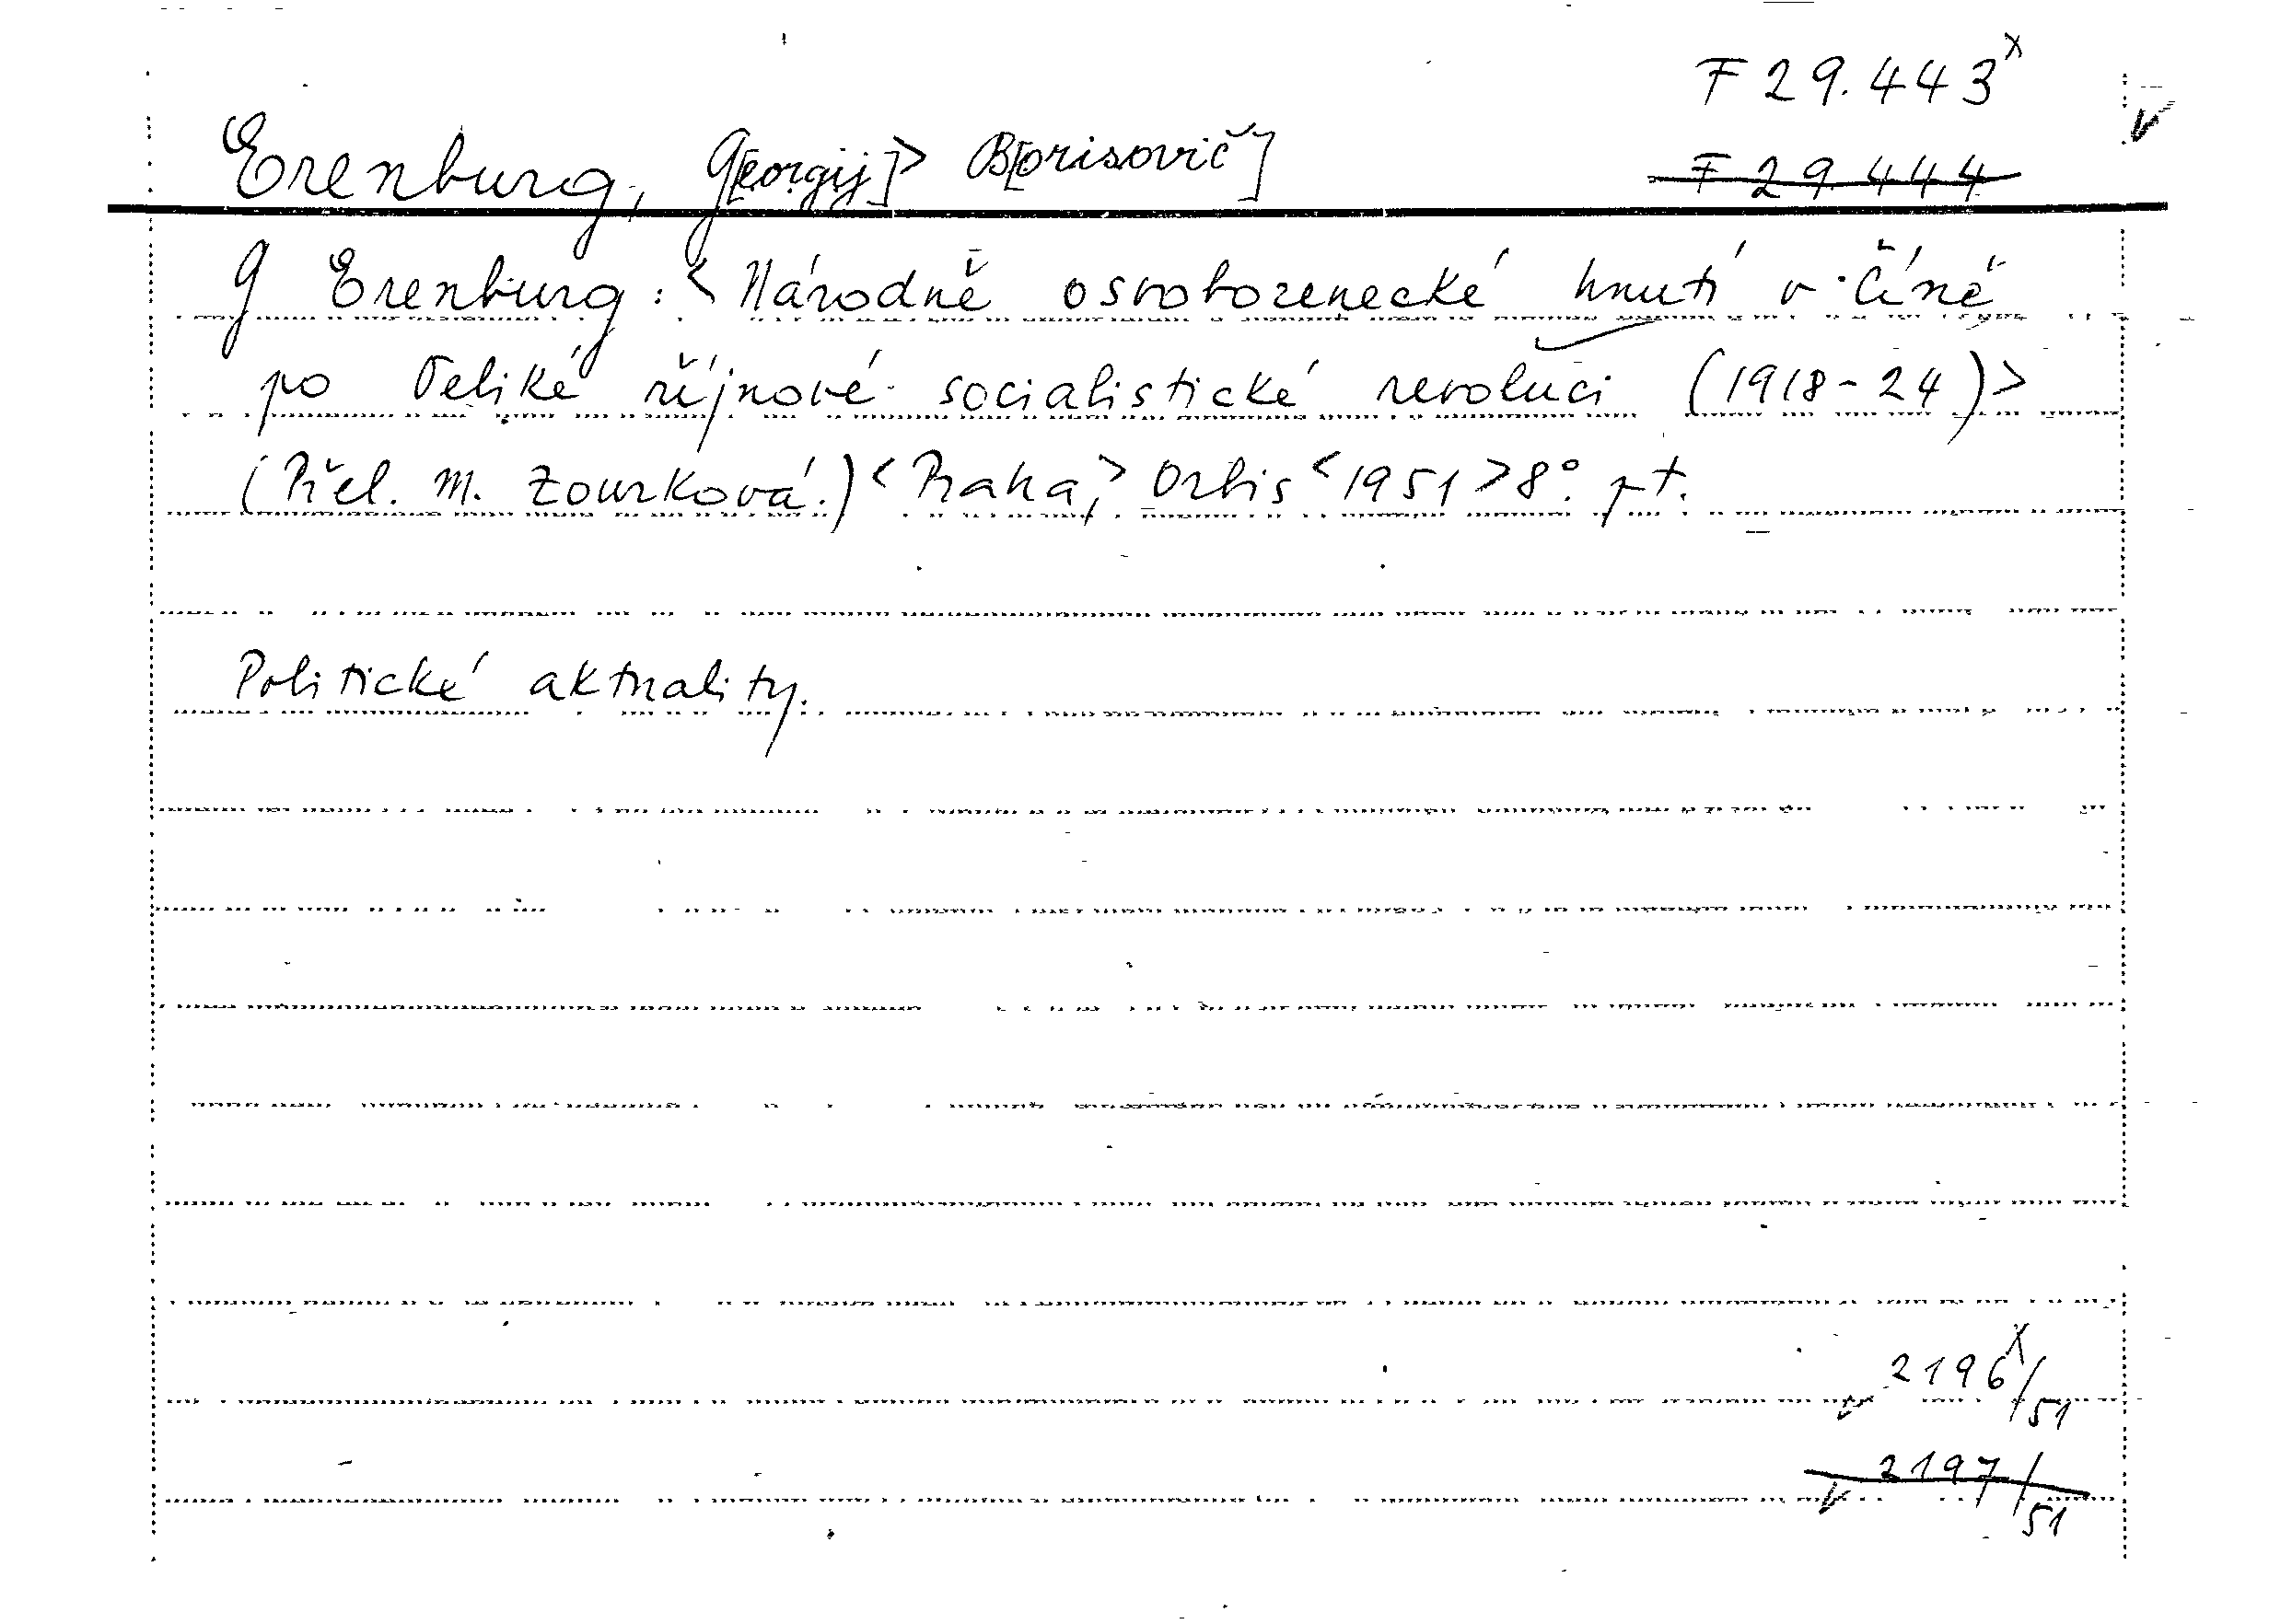 F 29.443x
Erenburg, G[eorgij]> B[orisovič]
F 29.444
G Erenburg: <Národně osvobozenecké hnutí v Číně
po Veliké říjnové socialistické revoluci (1918-24)>
(Přel. M. Zourková.) <Praha,> Orbis <1951> 8°. pt.
Politické aktuality.
2196x/51
2197/51